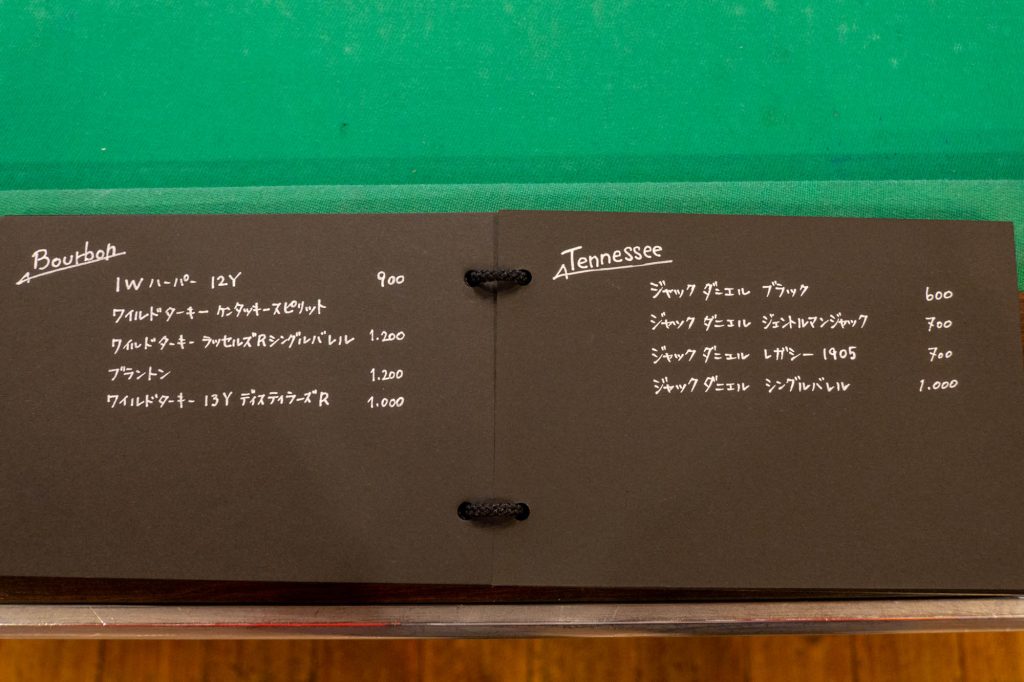 Bourbon
IW ハーパー 12Y 900
ワイルドターキー ケンタッキースピリット
ワイルドターキー ラッセルズRシングルバレル 1.200
ブラントン 1.200
ワイルドターキー 13Y ディスティラーズR 1.000
Tennessee
ジャック ダニエル ブラック 600
ジャック ダニエル ジェントルマンジャック 700
ジャック ダニエル レガシー 1905 700
ジャック ダニエル シングルバレル 1.000